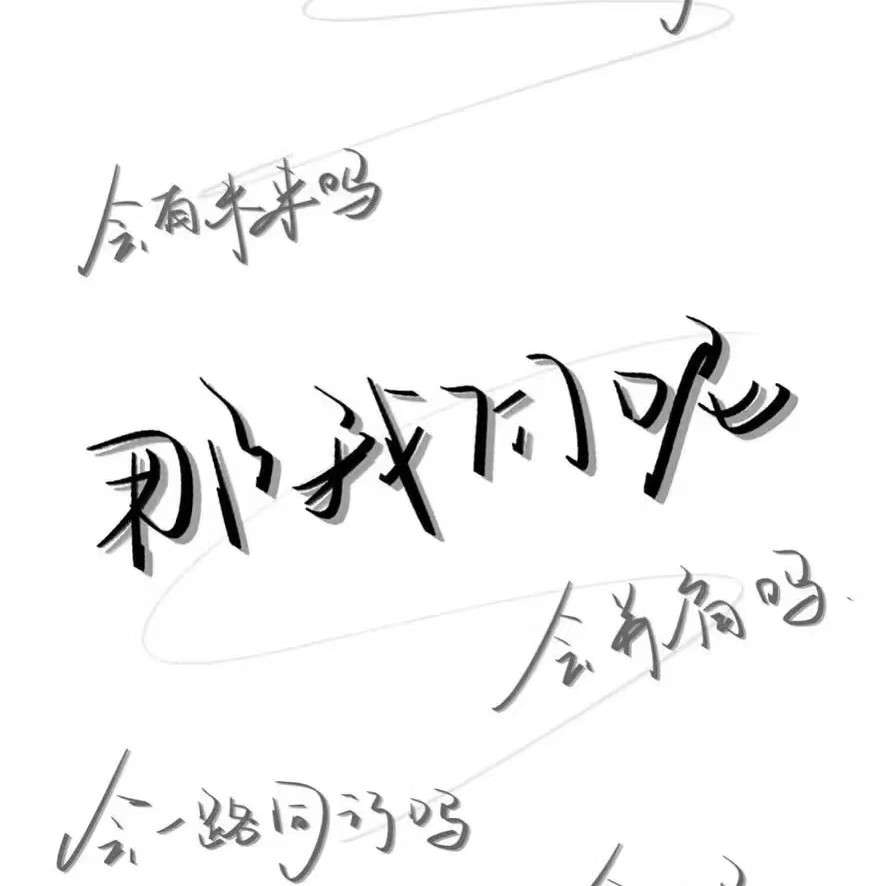 会有未来吗
那我们呢
会并肩吗
会一路同行吗